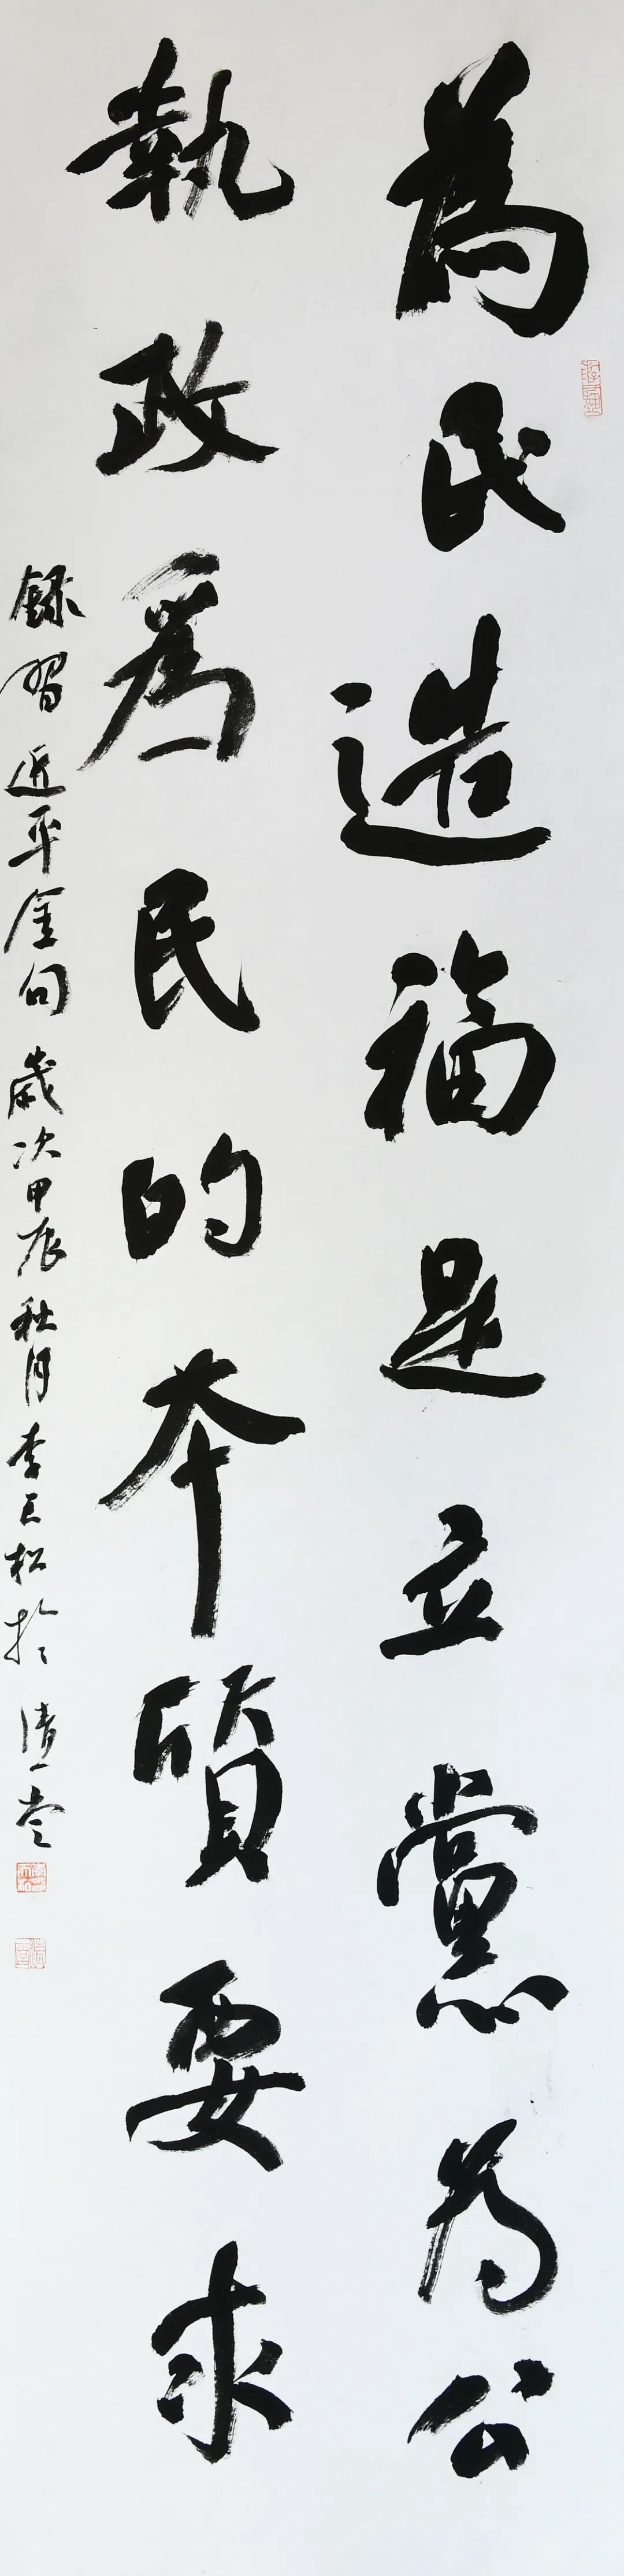 為民造福是立黨為公
執政為民的本質要求
錄習近平金句 歲次甲辰秋月 李 松於清一堂